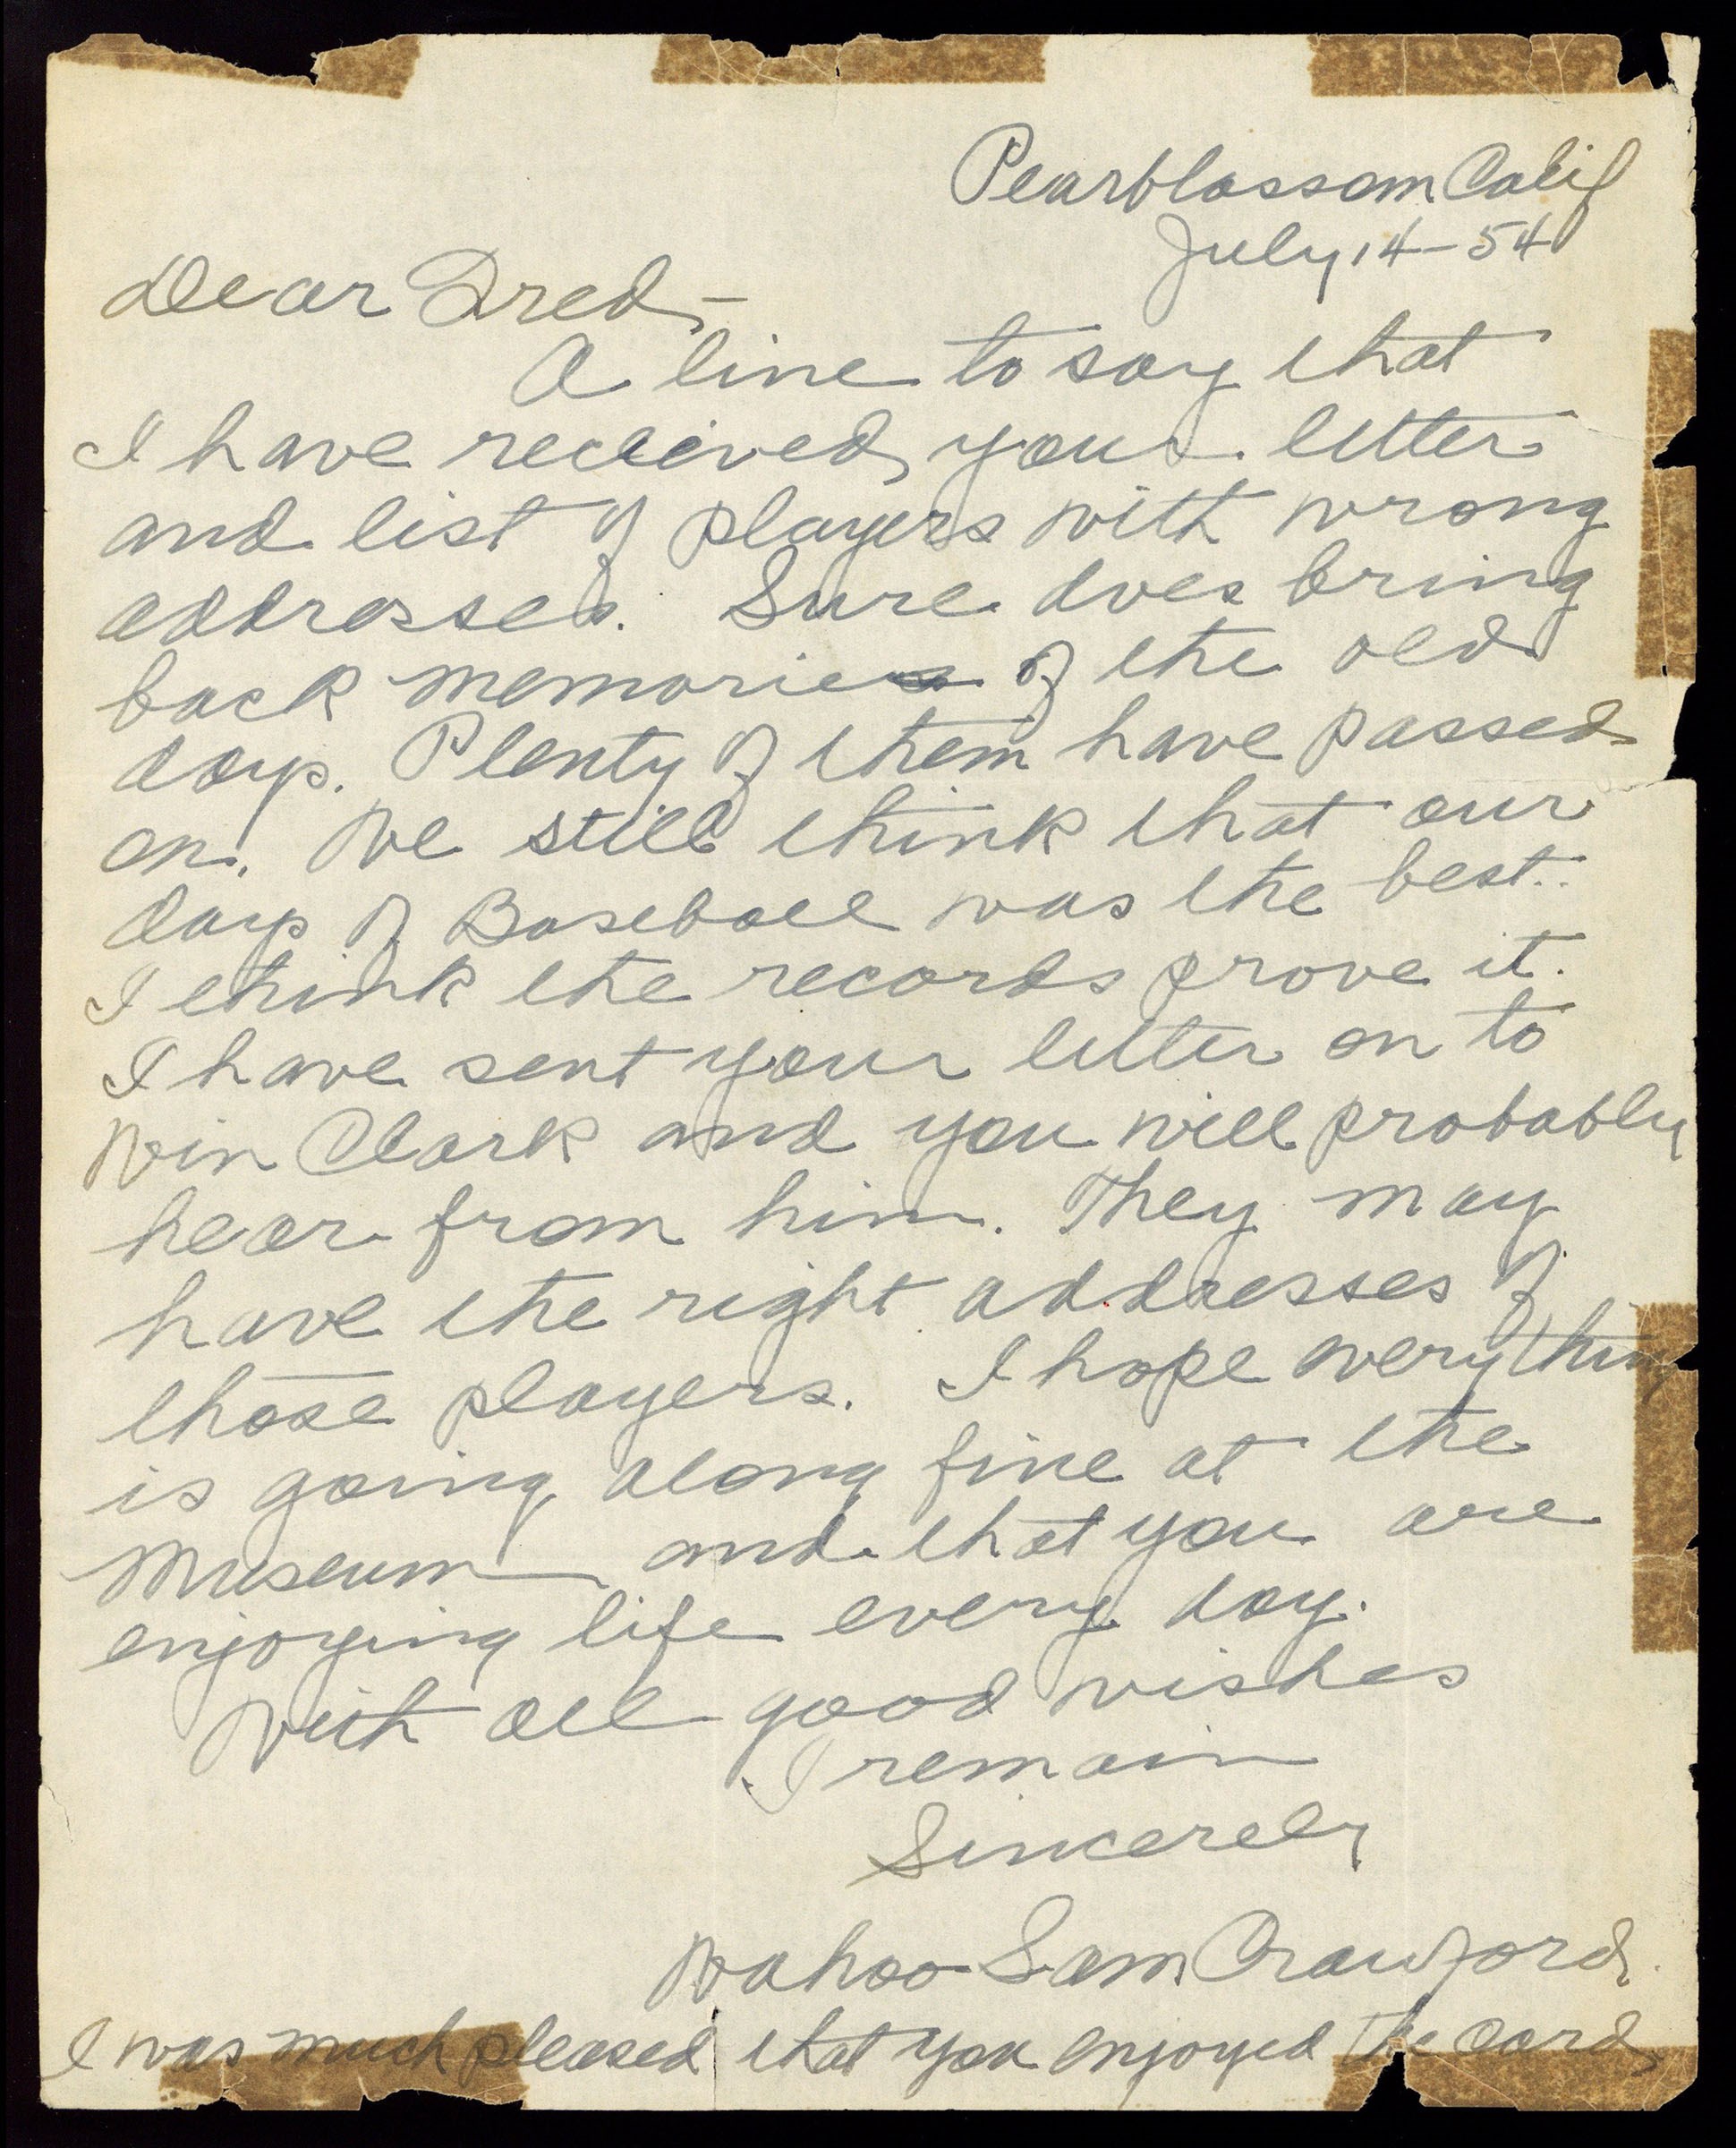 Pearblossom, Calif
July 14-54
Dear Fred, —
A line to say that
I have recieved your letter
and list of players with wrong
addresses. Sure does bring
back memories of the old
days. Plenty of them have passed
on. We still think that our
days of Baseball was the best.
I think the records prove it.
I have sent your letter on to
Win Clark and you will probably
hear from him. They may
have the right addresses of
those players. I hope everything
is going along fine at the
Museum and that you are
enjoying life every day.
With all good wishes
I remain
Sincerely
Wahoo Sam Crawford.
I was much pleased that you enjoyed the card